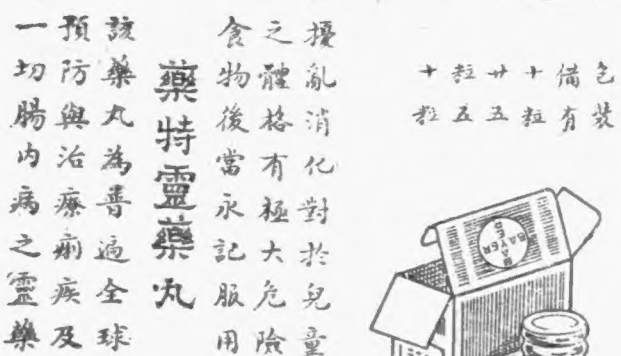 包裝
備有
十粒
廿五
粒五
十粒
擾亂消化對於兒童
之體格有極大危險
食物後當永記服用
藥特靈藥丸
該藥丸為普遍全球
預防與治療痢疾及
一切腸內病之靈藥
BAYER
BAYER